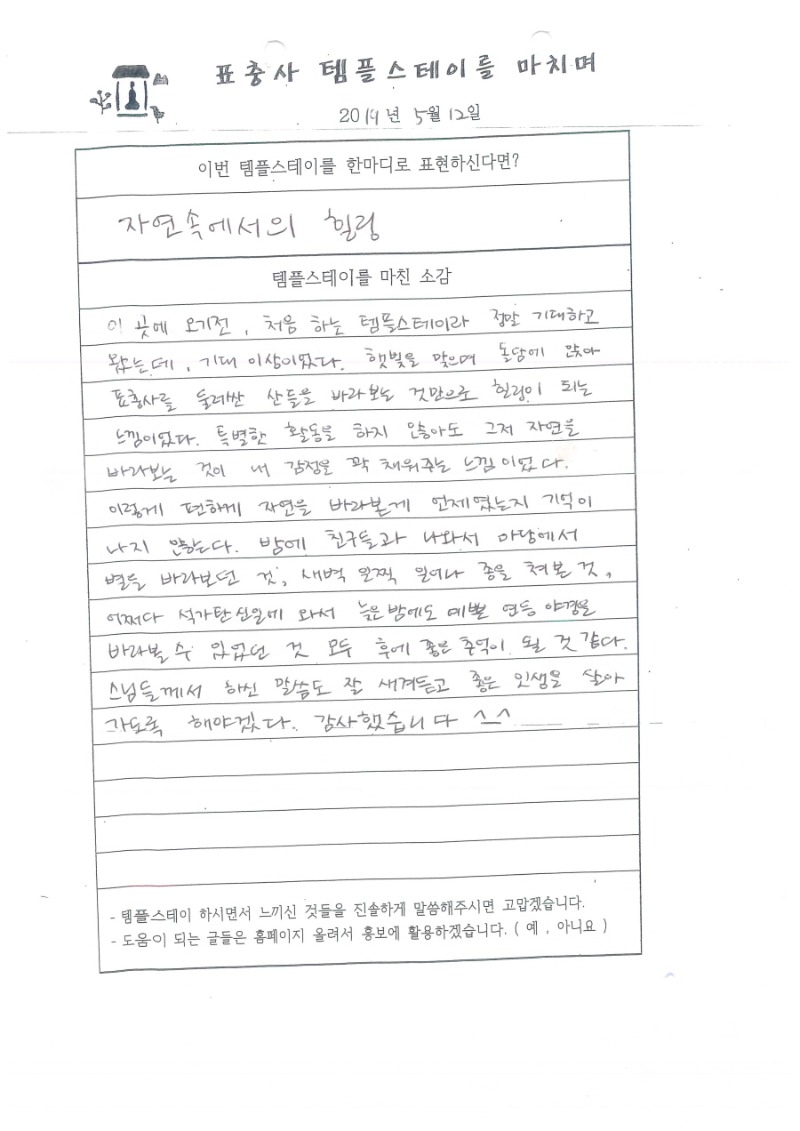 표충사 템플스테이를 마치며
2019년 5월 12일
이번 템플스테이를 한마디로 표현하신다면?
자연속에서의 힐링
템플스테이를 마친 소감
이 곳에 오기전, 처음 하는 템플스테이라 정말 기대하고
왔는데, 기대 이상이었다. 햇빛을 맞으며 돌담에 앉아
표충사를 둘러싼 산들을 바라보는 것만으로 힐링이 되는
느낌이었다. 특별한 활동을 하지 않아도 그저 자연을
바라보는 것이 내 감정을 꽉 채워주는 느낌이었다.
이렇게 편하게 자연을 바라본게 언제였는지 기억이
나지 않는다. 밤에 친구들과 나와서 마당에서
별들 바라보던 것, 새벽 일찍 일어나 종을 쳐본 것,
어쩌다 석가탄신일에 와서 늦은 밤에도 예쁜 연등 야경을
바라볼 수 있었던 것 모두 후에 좋은 추억이 될 것 같다.
스님들께서 하신 말씀도 잘 새겨듣고 좋은 인생을 살아
가도록 해야겠다. 감사했습니다 ^_^
- 템플스테이 하시면서 느끼신 것들을 진솔하게 말씀해주시면 고맙겠습니다.
- 도움이 되는 글들은 홈페이지 올려서 홍보에 활용하겠습니다. ( 예 , 아니요 )